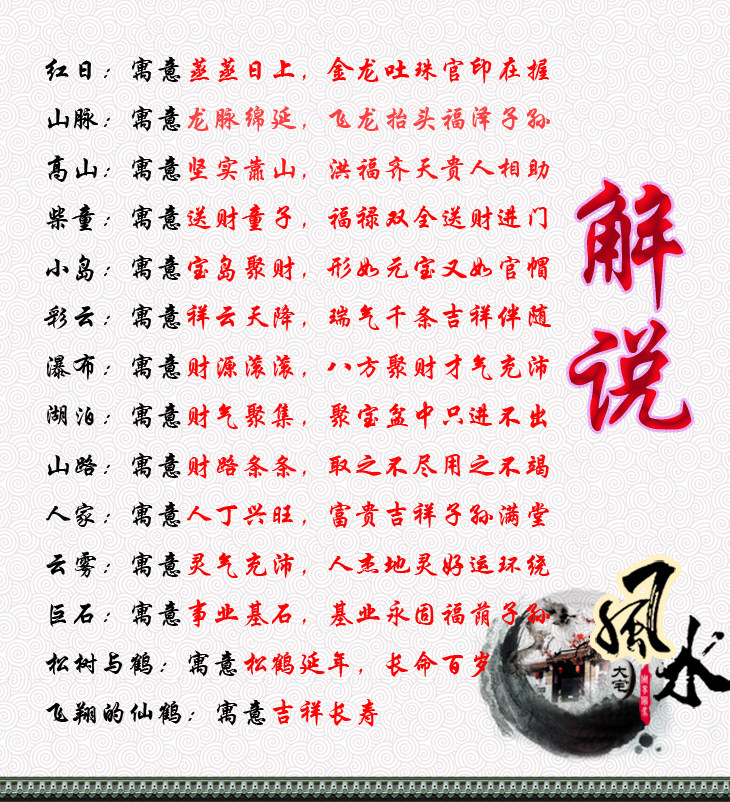 红日：寓意蒸蒸日上，金龙吐珠官印在握
山脉：寓意龙脉绵延，飞龙抬头福泽子孙
高山：寓意坚实靠山，洪福齐天贵人相助
柴童：寓意送财童子，福禄双全送财进门
小岛：寓意宝岛聚财，形如元宝又如官帽
彩云：寓意祥云天降，瑞气千条吉祥伴随
瀑布：寓意财源滚滚，八方聚财才气充沛
湖泊：寓意财气聚集，聚宝盆中只进不出
山路：寓意财路条条，取之不尽用之不竭
人家：寓意人丁兴旺，富贵吉祥子孙满堂
云雾：寓意灵气充沛，人杰地灵好运环绕
巨石：寓意事业基石，基业永固福荫子孙
松树与鹤：寓意松鹤延年，长命百岁
飞翔的仙鹤：寓意吉祥长寿
解说
風水
大宅